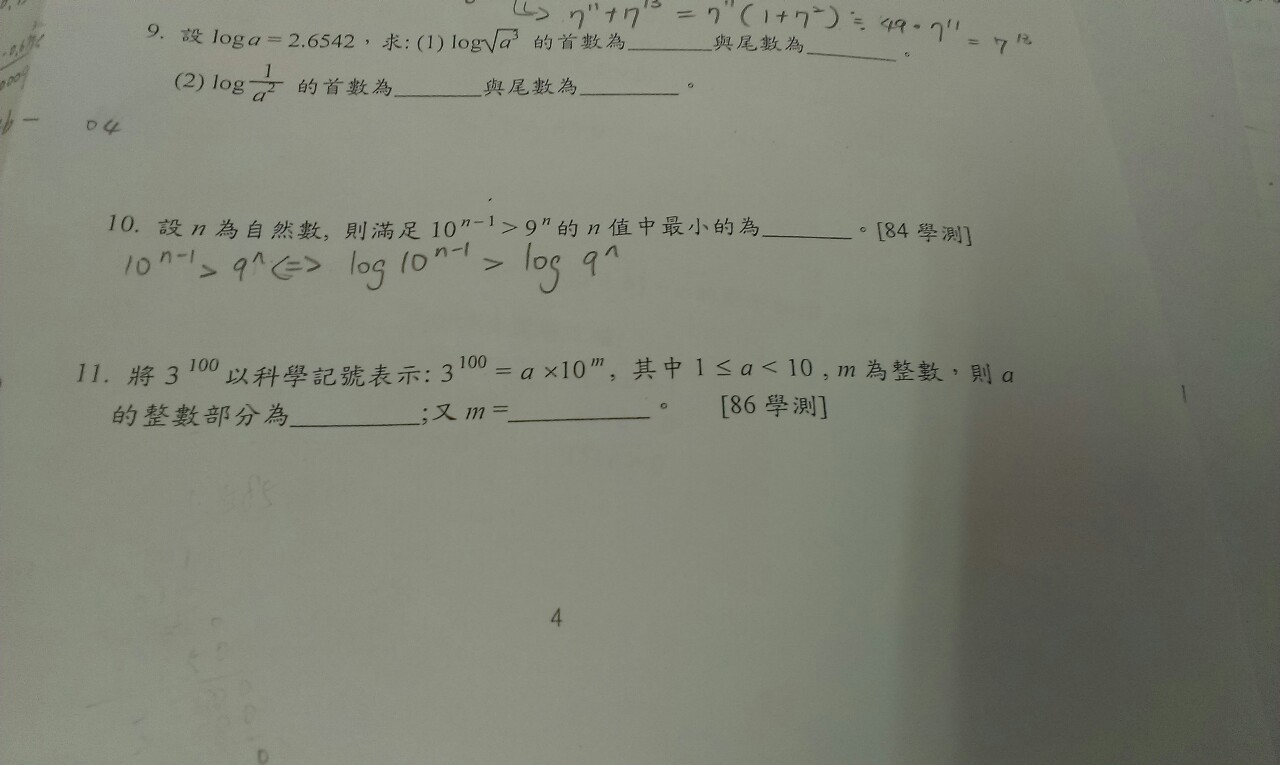 (1) 7¹¹+7¹³ = 7¹¹(1+7²) ≒ 49·7¹¹
= 7¹³
9. 設 log a = 2.6542，求: (1) log√a³ 的首數為______與尾數為______。
(2) log 1/a² 的首數為______與尾數為______。
04
10. 設 n 為自然數, 則滿足 10ⁿ⁻¹ > 9ⁿ 的 n 值中最小的為______。[84 學測]
10ⁿ⁻¹ > 9ⁿ <=> log 10ⁿ⁻¹ > log 9ⁿ
11. 將 3¹⁰⁰ 以科學記號表示: 3¹⁰⁰ = a ×10ᵐ, 其中 1 ≤ a < 10 , m 為整數，則 a
的整數部分為________;又 m =_________。 [86 學測]
4